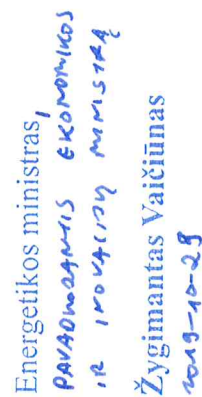 Energetikos ministras,
PAVADUOJANTIS EKONOMIKOS
IR INOVACIJŲ MINISTRĄ
Žygimantas Vaičiūnas
2019-10-29